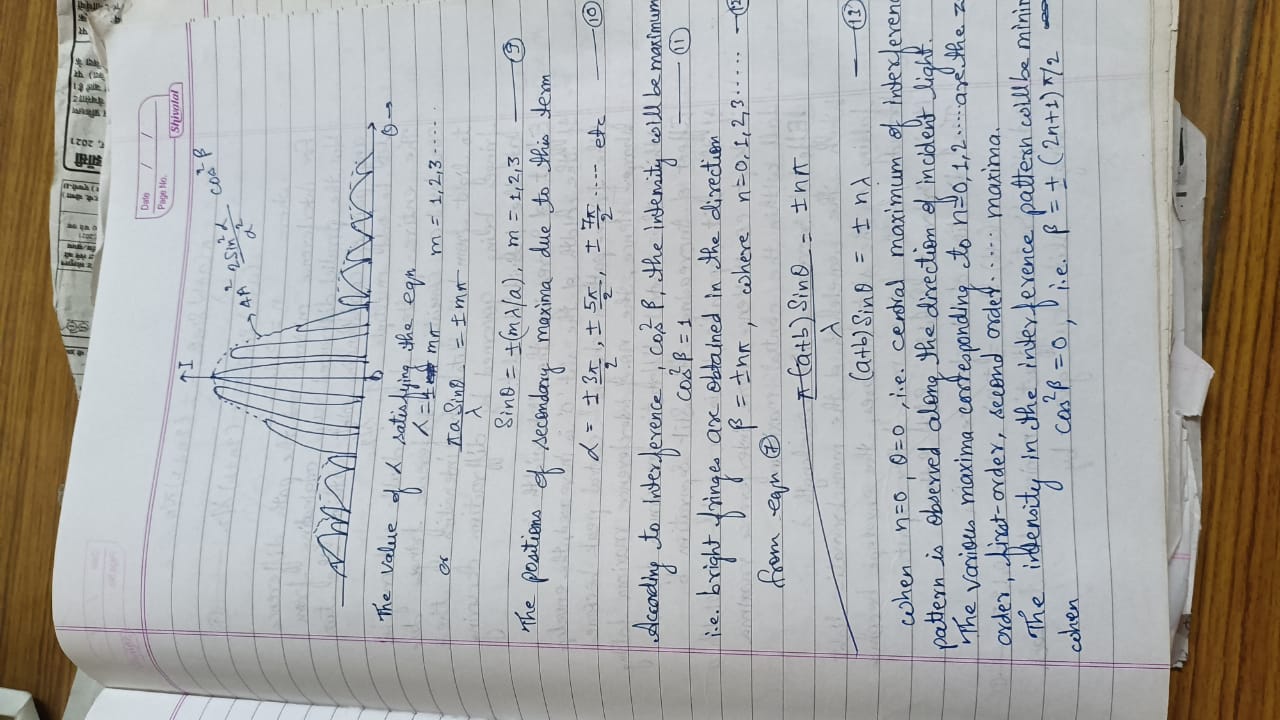 Date / /
Page No.
Shivalal
↑I
AA² 2 sin²α/α² cos²β
0
θ→
The value of α satisfying the eqn
α = mπ m = 1,2,3....
or πa Sinθ/λ = ±mπ
Sinθ = ±(mλ/a), m = 1,2,3 —⑨
The positions of secondary maxima due to this term
α = ± 3π/2, ± 5π/2, ± 7π/2 ..... etc —⑩
According to interference, cos²β, the intensity will be maximum
cos²β = 1 —⑪
i.e. bright fringes are obtained in the direction
β = ±nπ, where n=0,1,2,3...... —⑫
from eqn ⑦
π(a+b)Sinθ/λ = ±nπ
(a+b)Sinθ = ± nλ —⑬
when n=0, θ=0, i.e. central maximum of interferenc
pattern is observed along the direction of incident light.
The various maxima corresponding to n=0,1,2.....are the z
order, first-order, second order..... maxima.
The intensity in the interference pattern will be minim
when cos²β = 0, i.e. β = ± (2n+1)π/2 —